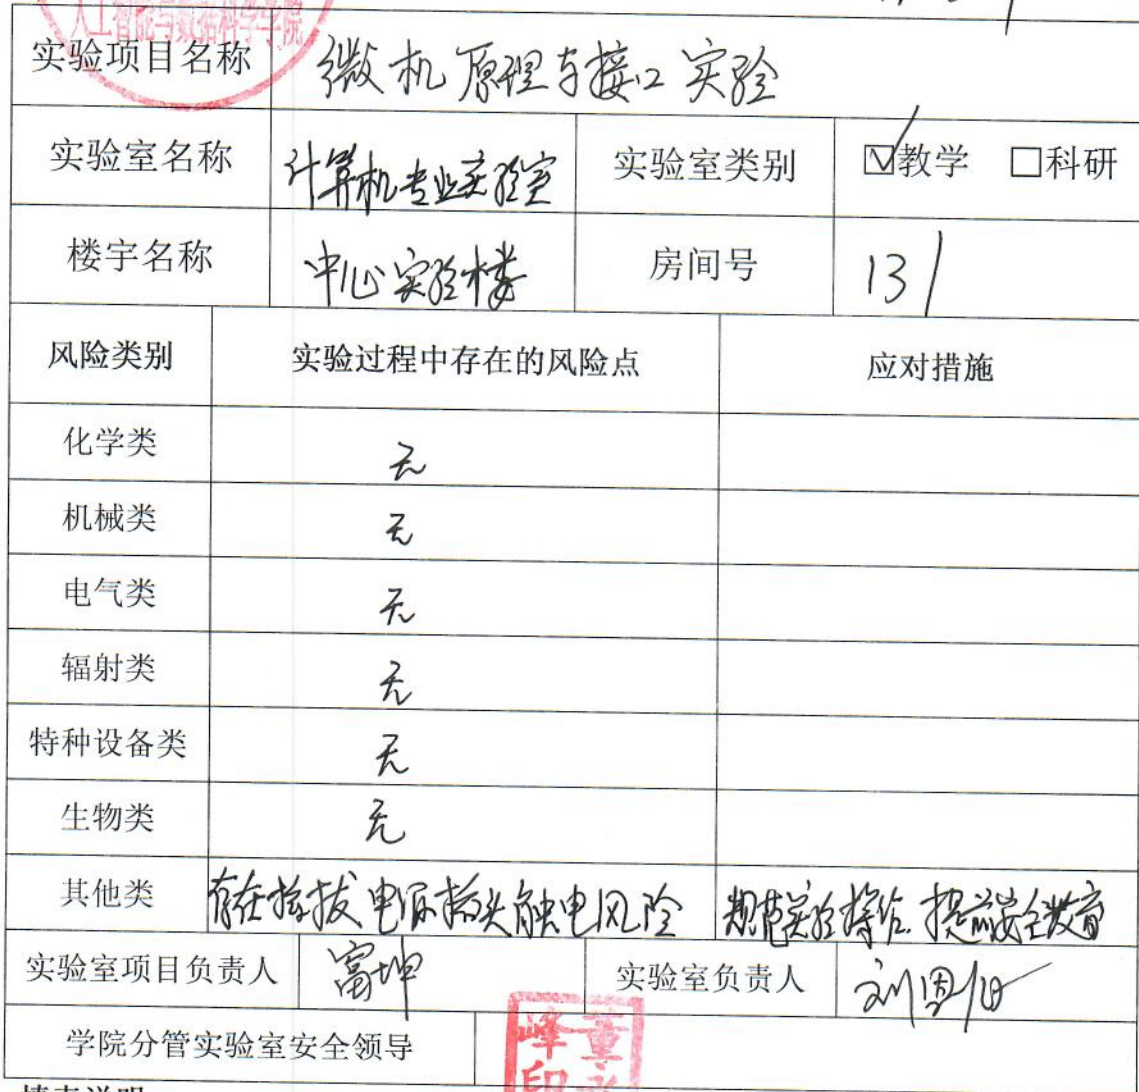 人工智能与数据科学学院
实验项目名称 微机原理与接口实验
实验室名称 计算机专业实验室 实验室类别 ☑教学 □科研
楼宇名称 中心实验楼 房间号 131
风险类别 实验过程中存在的风险点 应对措施
化学类 无
机械类 无
电气类 无
辐射类 无
特种设备类 无
生物类 无
其他类 存在插拔电源插头触电风险 规范实验操作 提前安全教育
实验室项目负责人 富坤 实验室负责人 刘恩
学院分管实验室安全领导 董 峰印
填表说明